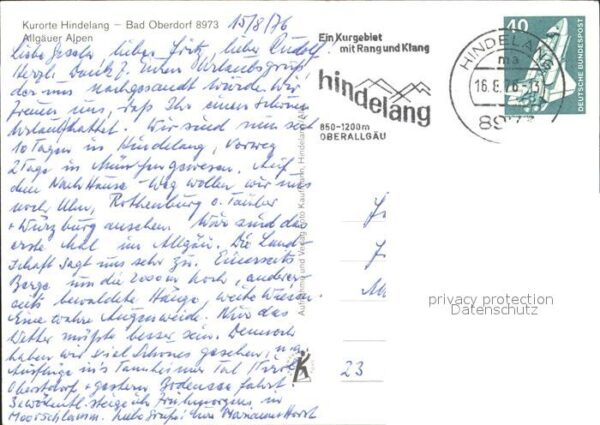 Kurorte Hindelang – Bad Oberdorf 8973
Allgäuer Alpen
15/8/76
Liebe Gesela, lieber Fritz, lieber Rudolf!
Herzl. Dank f. Euren Urlaubsgruß
der uns nachgesandt wurde. Wir
freuen uns, daß Ihr einen schönen
Urlaub hattet. Wir sind nun seit
10 Tagen in Hindelang, vorweg
2 Tage in München gewesen. Auf
dem Nach Hause-Weg wollen wir uns
noch Ulm, Rothenburg o. Tauber
+ Würzburg ansehen. Wir sind das
erste Mal im Allgäu. Die Land-
schaft sagt uns sehr zu. Einerseits
Berge um die 2000 m hoch, anderer-
seits bewaldete Hänge, weite Wiesen.
Eine wahre Augenweide. Nur das
Wetter müßte besser sein. Dennoch
haben wir viel Schönes gesehen,
Ausflüge in's Tannheimer Tal
Oberstdorf + gestern Bodensee fahrt
Gewöhnl. steige ich Frühmorgens in
Moorschlamm. Liebe Grüße! Eure Marianne + Horst
Ein Kurgebiet
mit Rang und Klang
hindelang
850-1200m
OBERALLGÄU
HINDELANG
ma
16.8.76-13
8973
40
DEUTSCHE BUNDESPOST
Aufnahme und Verlag Foto Kaufmann, Hindelang/Allg.
23
privacy protection
Datenschutz